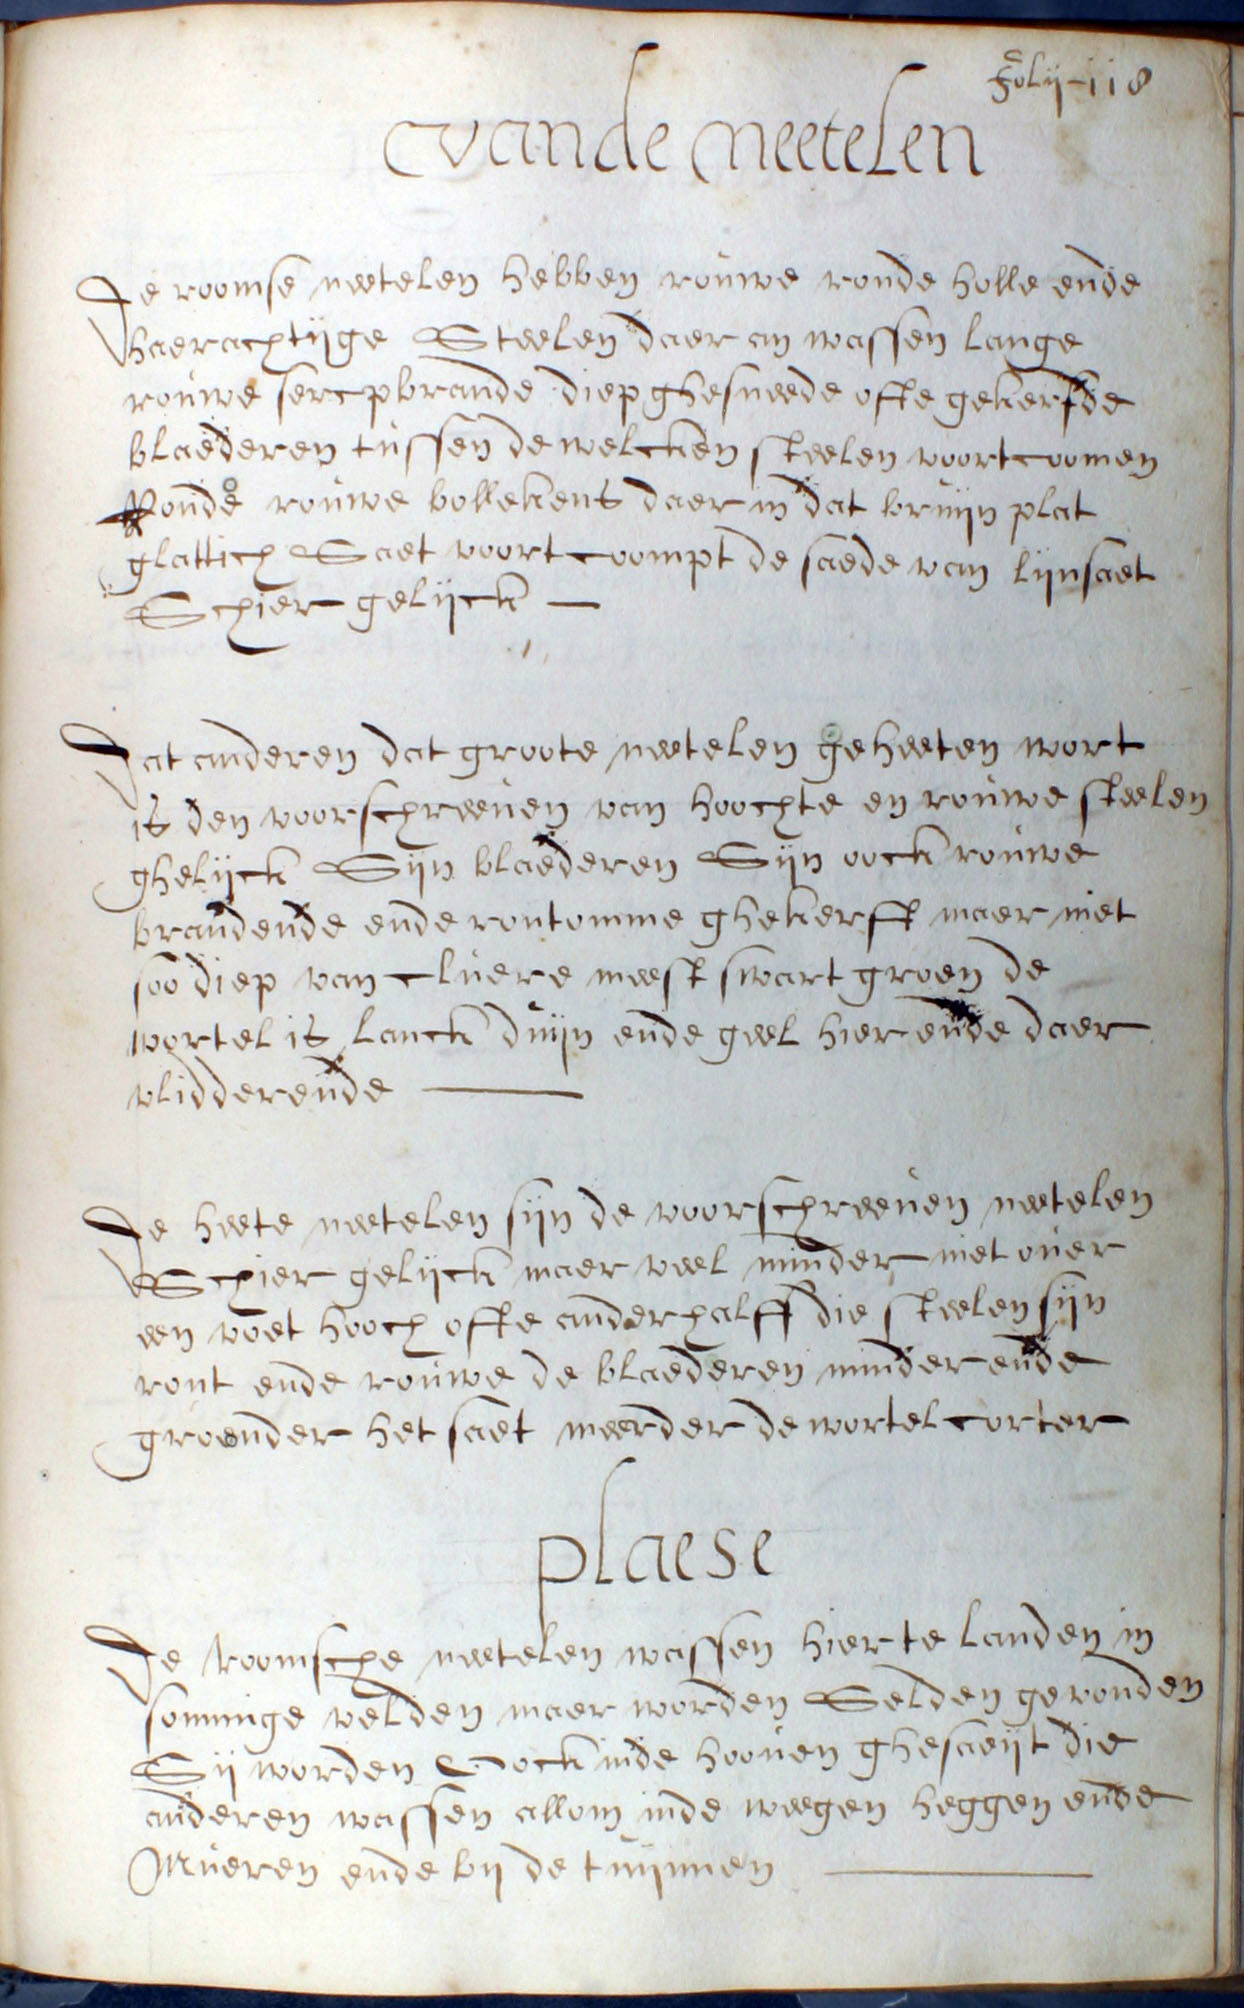 Folij-118
vande Neetelen
De roomse neetelen hebben rouwe ronde holle ende
haerachtijge Steelen daer an wassen lange
rouwe sercpbrande diep ghesneede ofte gekerfde
blaederen tussen de welcken steelen voortcoomen
Ronde rouwe bollekens daer in dat bruijn plat
glattich Saet voort coompt de saede van lijnsaet
Schier gelijck
Dat anderen dat groote neetelen geheeten wort
is den voorschreeuen van hoochte en rouwe steelen
ghelijck Sijn blaederen Sijn oock rouwe
brandende ende rontomme ghekerfft maer niet
soo diep van cluere meest swart groen de
wortel is lanck duijn ende geel hier ende daer
vlidderende
De heete neetelen sijn de voorschreeuen neetelen
Schier gelijck maer veel minder niet ouer
een voet hooch ofte anderhalff die steelen sijn
ront ende rouwe de blaederen minder ende
groender het saet meerder de wortel corter
plaese
De Roomsche neetelen wassen hier te landen in
sominge velden maer worden Selden gevonden
Sij worden Oock inde hoouen ghesaeijt die
anderen wassen allom inde weegen heggen ende
Mueren ende bij de tuijnnen